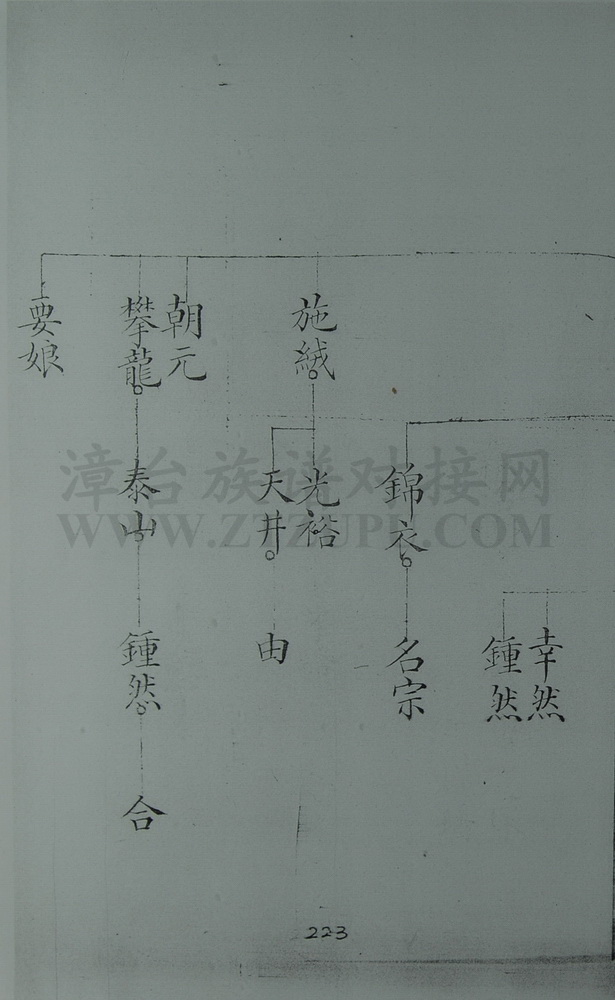 施絨
朝元
攀龍
要娘
錦衣
光裕
天井
泰山
幸然
鍾然
名宗
由
鍾然
合
223
漳台族谱对接网
WWW.ZTZUPU.COM